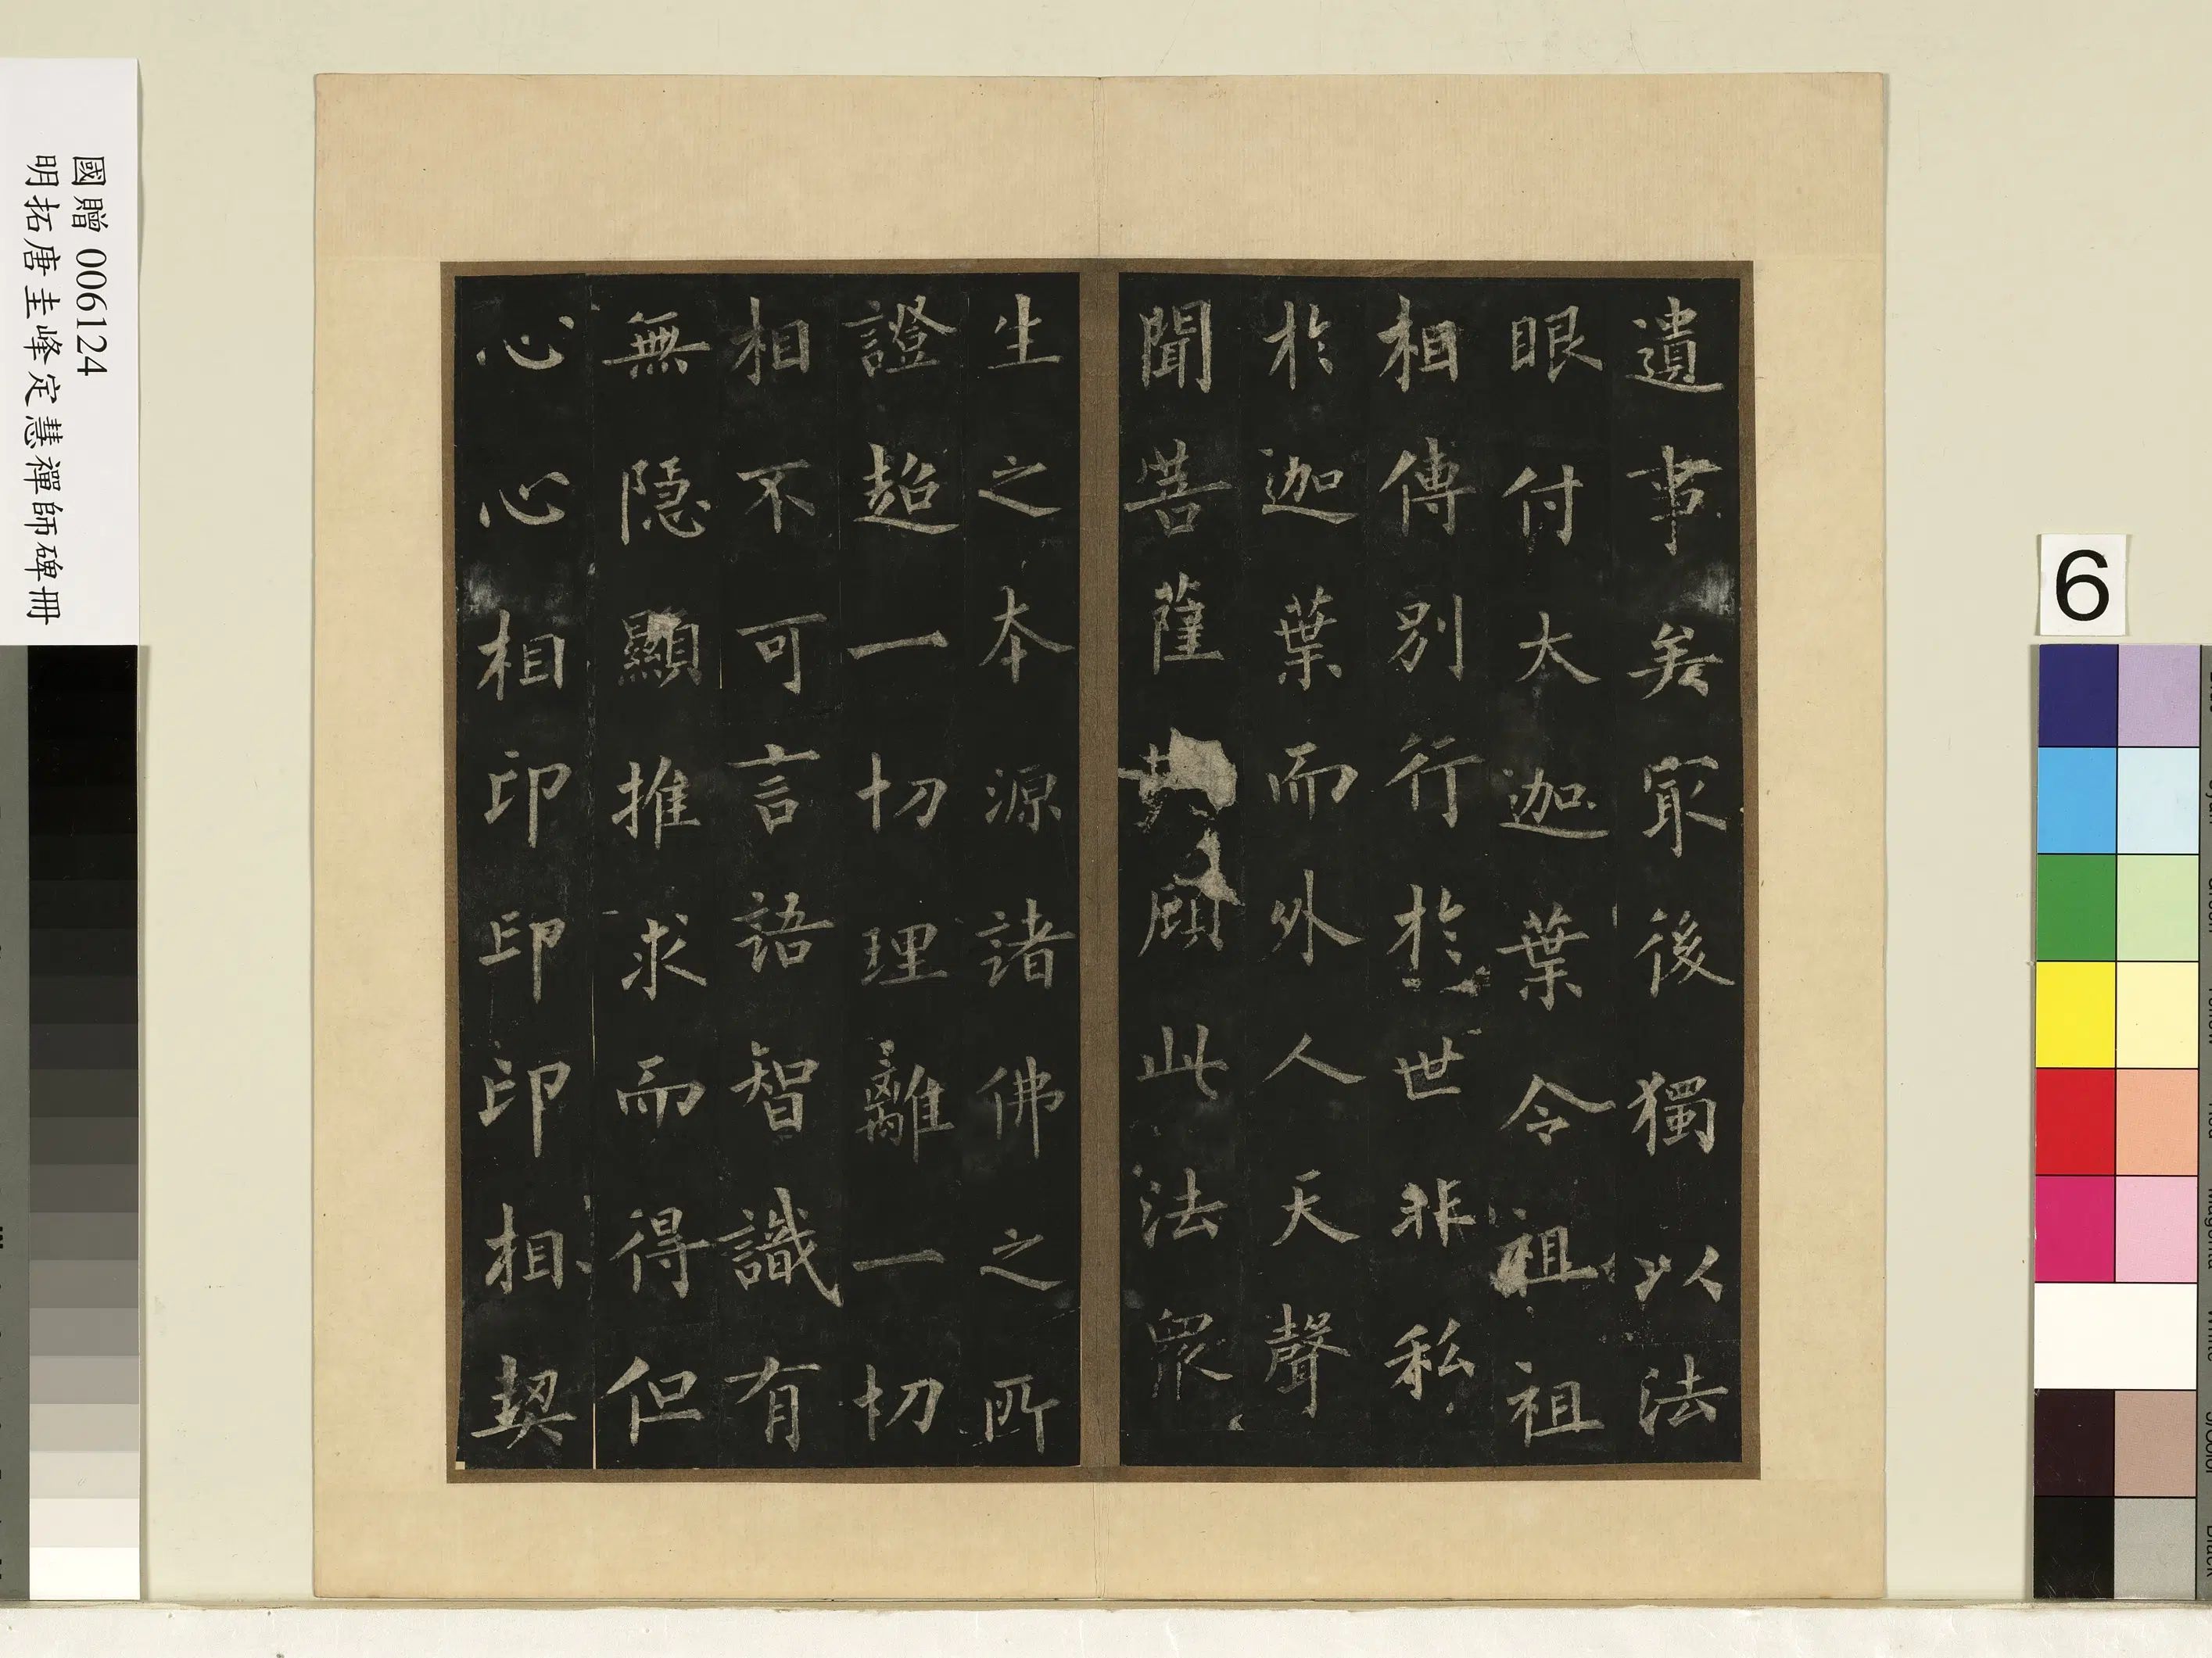 國贈 006124
明拓唐圭峰定慧禪師碑冊
遺事矣㝡後獨以法
眼付大迦葉令祖祖
相傳別行於世非私
於迦葉而外人天聲
聞菩薩顧此法眾
生之本源諸佛之所
證超一切理離一切
相不可言語智識有
無隱顯推求而得但
心心相印印印相契
6